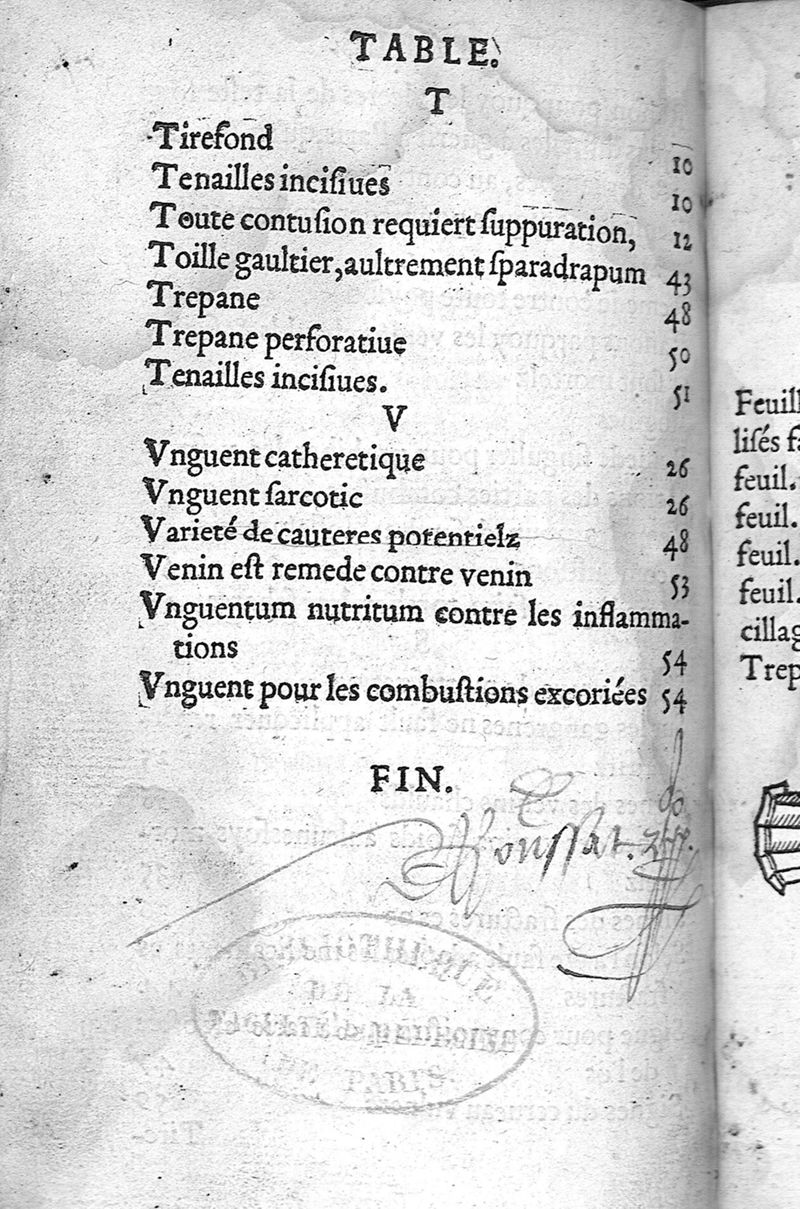 TABLE.
T
Tirefond 10
Tenailles inciſiues 10
Toute contuſion requiert ſuppuration, 12
Toille gaultier, aultrement ſparadrapum 43
Trepane 48
Trepane perforatiue 50
Tenailles inciſiues. 51
V
Vnguent catheretique 26
Vnguent ſarcotic 26
Varieté de cauteres potentielz 48
Venin eſt remede contre venin 53
Vnguentum nutritum contre les inflamma-
tions 54
Vnguent pour les combuſtions excoriées 54
FIN.
Rouſſat.
BIBLIOTHEQUE
DE LA
FACULTÉ DE MEDECINE
DE PARIS.
Feuill
liſés fa
feuil.
feuil.
feuil.
feuil.
cillag
Trep